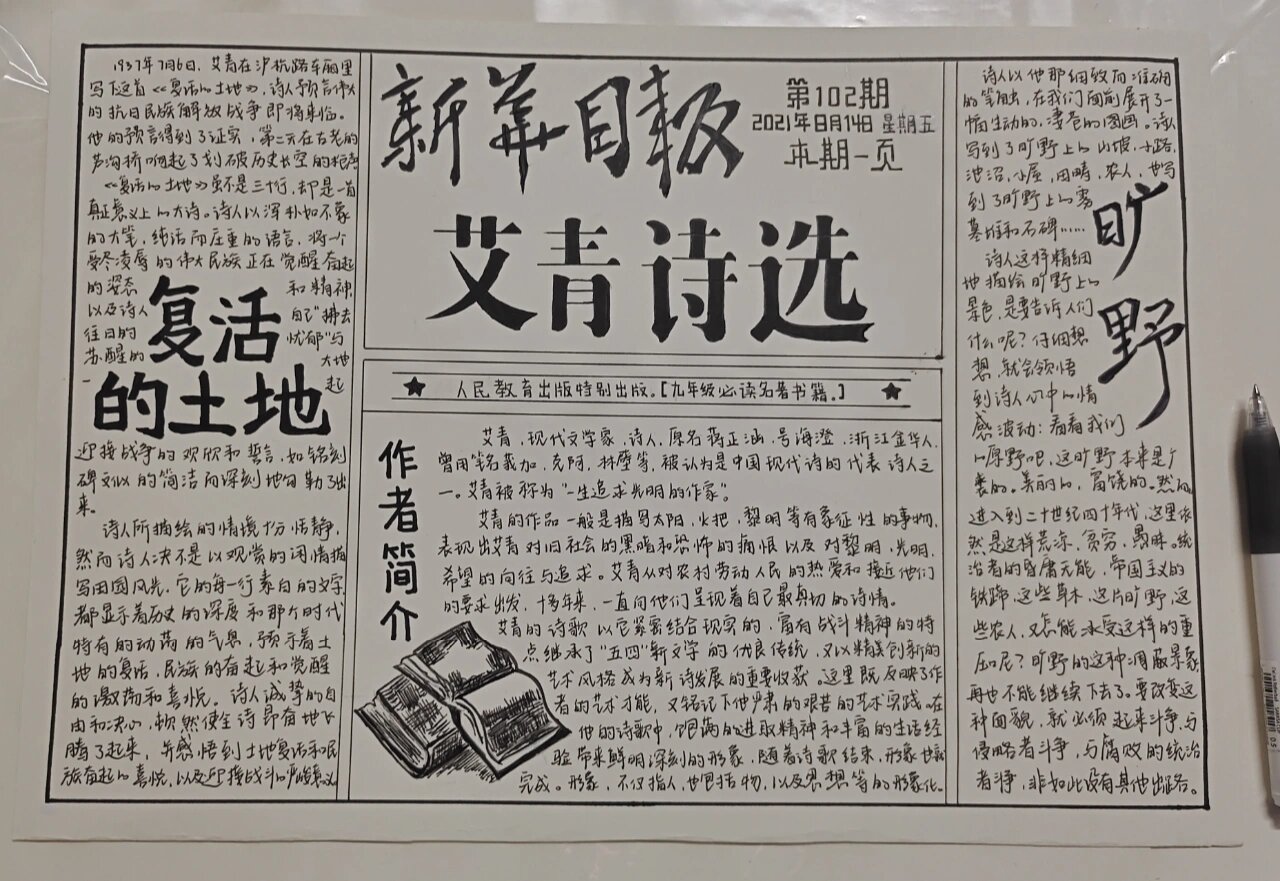 新华日报
第102期
2021年8月14日 星期五
本期一页
艾青诗选
★ 人民教育出版特别出版。【九年级必读名著书籍。】 ★
1937年7月6日、艾青在沪杭路车厢里
写下这首《复活的土地》,诗人预言伟大
的抗日民族解放战争即将来临。
他的预言得到了证实,第二天在古老的
芦沟桥响起了划破历史长空的枪声
《复活的土地》虽不是三十行,却是一首
真正意义上的大诗。诗人以浑朴如不象
的大笔,纯洁而庄重的语言,将一个
受尽凌辱的伟大民族正在觉醒奋起
的姿态 和精神
以及诗人 自己"拂去
往日的 忧郁"与
苏醒的 大地
一 起
复活
的土地
迎接战争的欢欣和誓言,如铭刻
碑文似的简洁而深刻地勾勒了出
来。
诗人所描绘的情境十分恬静,
然而诗人决不是以观赏的闲情描
写田园风光,它的每一行素白的文字
都显示着历史的深度和那个时代
特有的动荡的气息,预示着土
地的复活,民族的奋起和觉醒
的激荡和喜悦。诗人诚挚的自
由和决心,赖然使全诗昂奋地飞
腾了起来,并感悟到土地复活和民
族奋起的喜悦,以及迎接战斗的严峻意义
作者简介
艾青,现代文学家、诗人,原名蒋正涵,号海澄,浙江金华人,
曾用笔名莪加、克阿、林壁等,被认为是中国现代诗的代表诗人之
一。艾青被称为"一生追求光明的作家"。
艾青的作品一般是描写太阳,火把,黎明等有象征性的事物,
表现出艾青对旧社会的黑暗和恐怖的痛恨以及对黎明,光明,
希望的向往与追求。艾青从对农村劳动人民的热爱和接近他们
的要求出发,十多年来,一直向他们呈现着自己最真切的诗情。
艾青的诗歌以它紧密结合现实的,富有战斗精神的特
点继承了"五四"新文学的优良传统,又以精美创新的
艺术风格成为新诗发展的重要收获。这里既反映了作
者的艺术才能,又铭记下他严肃的艰苦的艺术实践。在
他的诗歌中,饱满的进取精神和丰富的生活经
验带来鲜明深刻的形象,随着诗歌结束,形象也就
完成。形象,不仅指人,也包括物,以及思想等的形象化。
旷野
诗人以他那细致而准确
的笔触,在我们面前展开了一
幅生动的,凄苍的图画。诗人
写到了旷野上的山坡,小路,
池沼,小屋,田畴,农人,也写
到了旷野上的雾
墓堆和石碑……
诗人这样精细
地描绘旷野上的
景色,是要告诉人们
什么呢?仔细想
想,就会领悟
到诗人心中的情
感波动:看看我们
的原野吧,这旷野本来是广
袤的。美丽的,富饶的。然而
进入到二十世纪四十年代,这里依
然是这样荒凉、贫穷,愚昧。统
治者的昏庸无能,帝国主义的
铁蹄,这些草木,这片旷野,这
些农人,又怎能承受这样的重
压呢?旷野的这种凋蔽景象
再也不能继续下去了。要改变这
种面貌,就必须起来斗争,与
侵略者斗争,与腐败的统治
者斗争,非如此没有其他出路。